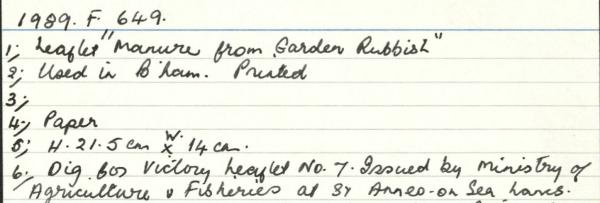 1989. F. 649.
1; Leaflet "Manure from Garden Rubbish"
2; Used in B'ham. Printed
3;
4; Paper
5; H. 21.5 cm x W. 14 cm.
6. Dig for Victory Leaflet No. 7. Issued by Ministry of
Agriculture & Fisheries at St Annes-on Sea Lancs.